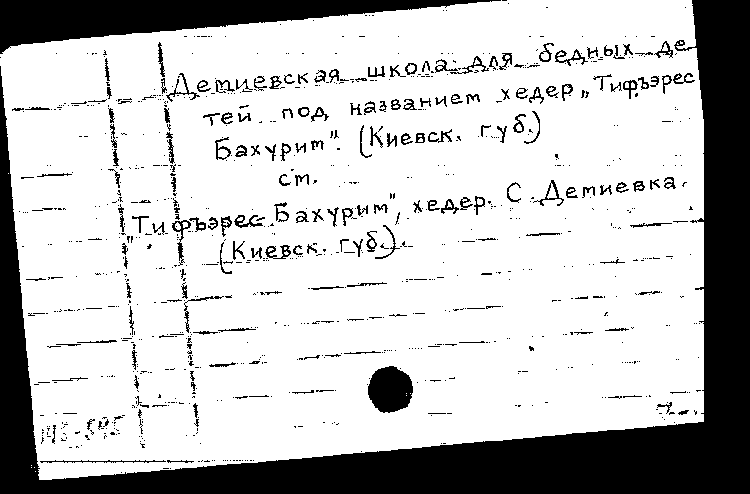 Демиевская школа для бедных де-
тей под названием хедер „Тифъэрес
Бахурим". (Киевск. губ.)
см.
„Тифъэрес Бахурим", хедер. С. Демиевка.
(Киевск. губ.).
143-595